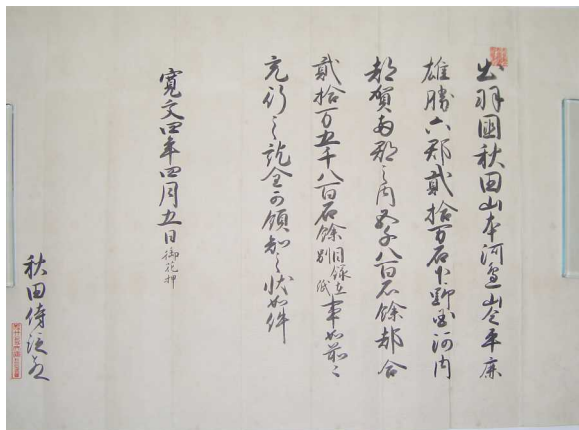 出羽国秋田山本河辺山乏平鹿
雄勝六郡貳拾万石下野国河内
都賀両郡之内五千八百石余都合
貳拾万五千八百石余目録在別紙事如前々
充行之訖全可領知之状如件
寛文四年四月五日御花押
秋田侍従